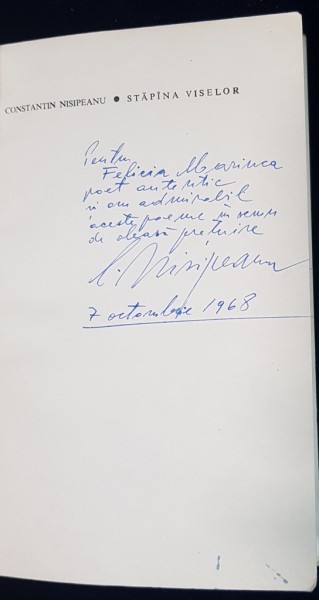 CONSTANTIN NISIPEANU ● STĂPÎNA VISELOR
Pentru
Felicia Marinca
poet autentic
și om admirabil
aceste poeme în semn
de aleasă prețuire
C. Nisipeanu
7 octombrie 1968